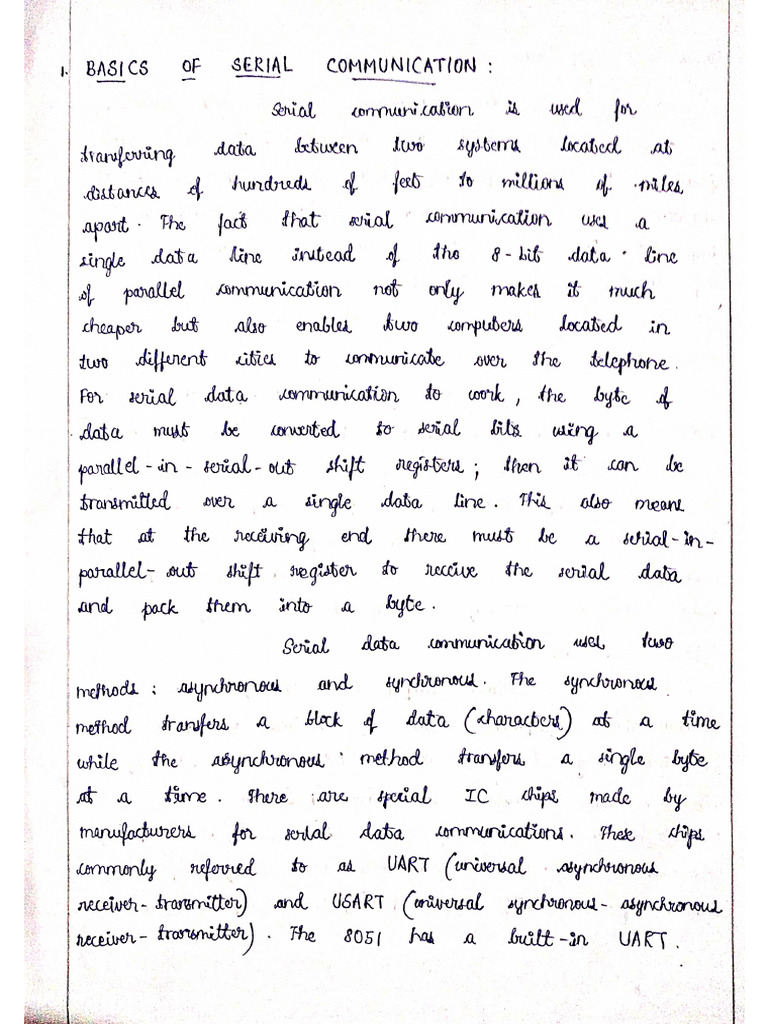 1. BASICS OF SERIAL COMMUNICATION :
Serial communication is used for
transferring data between two systems located at
distances of hundreds of feet to millions of miles
apart. The fact that serial communication uses a
single data line instead of the 8-bit data line
of parallel communication not only makes it much
cheaper but also enables two computers located in
two different cities to communicate over the telephone.
For serial data communication to work, the byte of
data must be converted to serial bits using a
parallel-in-serial-out shift registers; then it can be
transmitted over a single data line. This also means
that at the receiving end there must be a serial-in-
parallel-out shift register to receive the serial data
and pack them into a byte.
Serial data communication uses two
methods: asynchronous and synchronous. The synchronous
method transfers a block of data (characters) at a time
while the asynchronous method transfers a single byte
at a time. There are special IC chips made by
manufacturers for serial data communications. These chips
commonly referred to as UART (universal asynchronous
receiver-transmitter) and USART (universal synchronous-asynchronous
receiver-transmitter). The 8051 has a built-in UART.